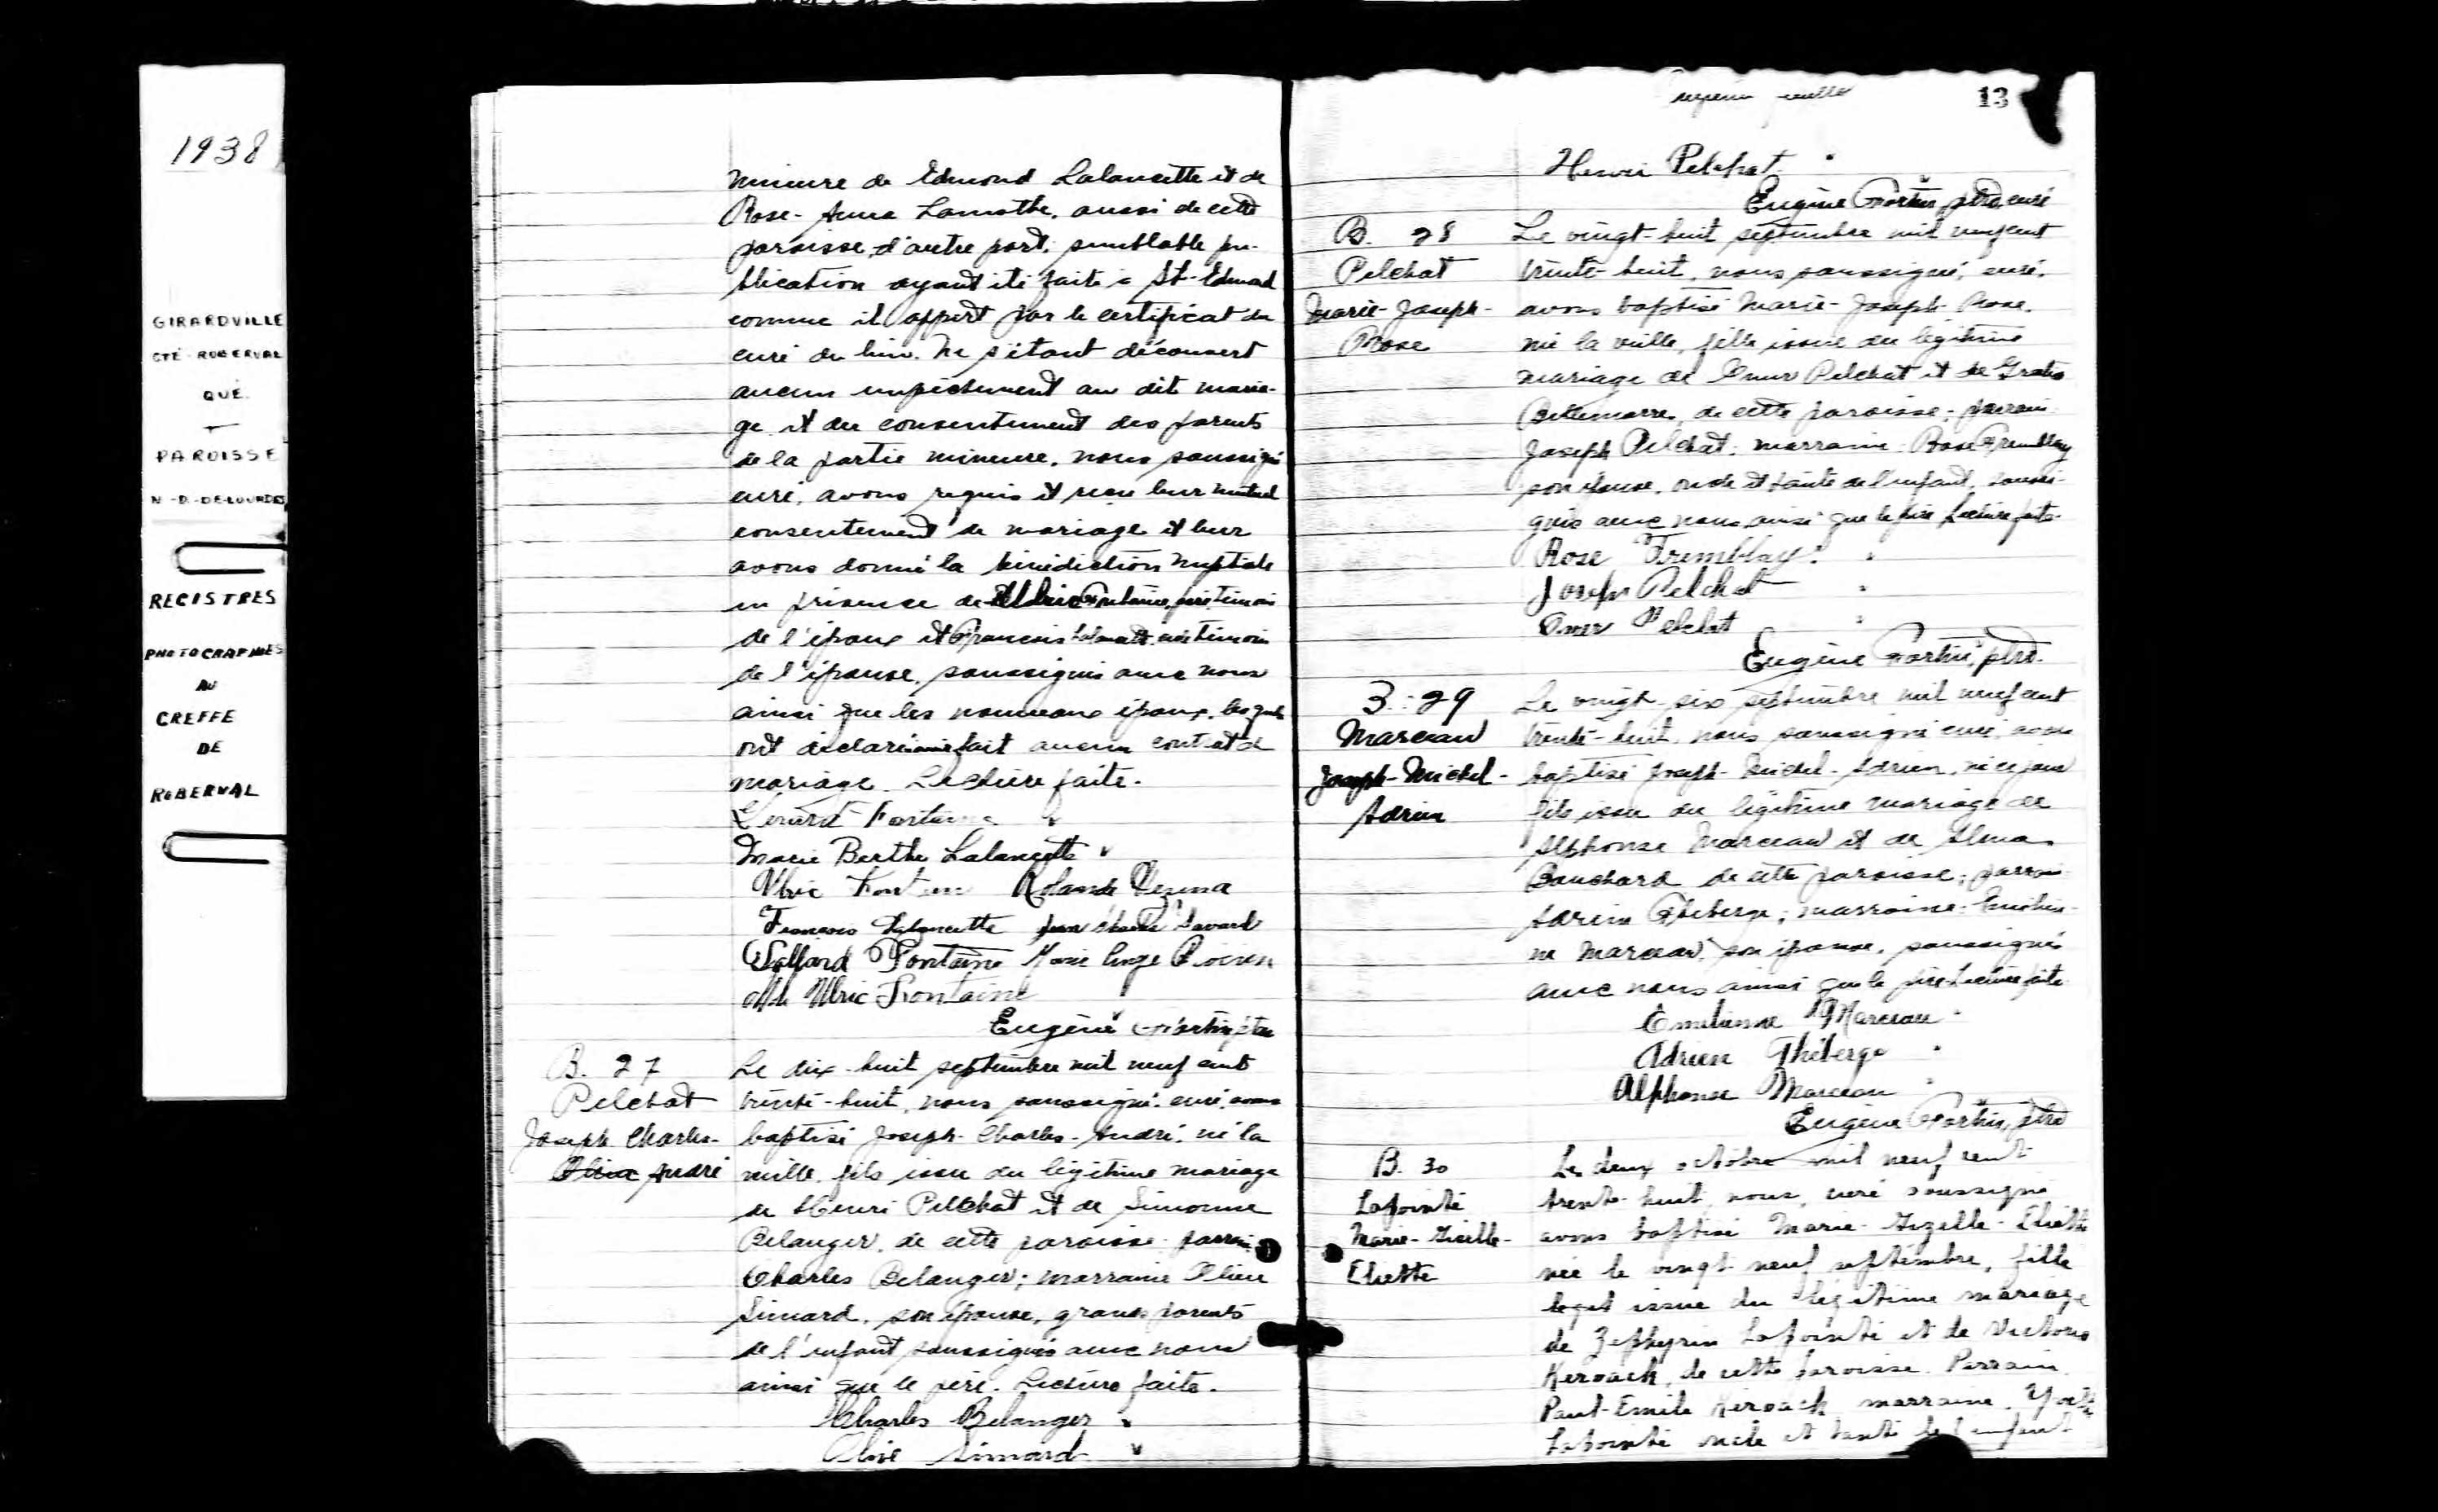 1938
GIRARDVILLE
CTÉ ROBERVAL
QUÉ.
PAROISSE
N.-D.-DE-LOURDES
REGISTRES
PHOTOGRAPHIES
AU
GREFFE
DE
ROBERVAL
mineure de Edmond Lalancette et de
Rose-Anna Lamothe, aussi de cette
paroisse, d'autre part; semblable pu-
blication ayant été faite à St-Edmond
comme il appert par le certificat du
curé du lieu. Ne s'étant découvert
aucun empêchement au dit maria-
ge et du consentement des parents
de la partie mineure, nous soussigné
curé, avons requis et reçu leur mutuel
consentement de mariage et leur
avons donné la bénédiction nuptiale
en présence de Ulric Fontaine, père témoin
de l'époux et François Lalancette témoin
de l'épouse, soussignés avec nous
ainsi que les nouveaux époux, lesquels
ont déclaré fait aucun contrat de
mariage. Lecture faite.
Gérard Fontaine
Marie Berthe Lalancette
Ulric Fontaine Rolande Vezina
François Lalancette Savard
Fontaine Marie Ange Poirier
Ulric Fontaine
Eugène Fortin, ptre
B. 27
Pelchat
Joseph Charles-
André
Le dix-huit septembre mil neuf cent
trente-huit, nous soussigné, curé, avons
baptisé Joseph-Charles-André, né la
veille, fils issu du légitime mariage
de Henri Pelchat et de Simonne
Belanger, de cette paroisse; parrain
Charles Belanger; marraine Olive
Simard, son épouse, grands parents
de l'enfant soussignés avec nous
ainsi que le père. Lecture faite.
Charles Belanger
Olive Simard
13
feuille
Henri Pelchat
Eugène Fortin, ptre, curé
B. 28
Pelchat
Marie-Joseph-
Rose
Le vingt-huit septembre mil neuf cent
trente-huit, nous soussigné, curé,
avons baptisé Marie-Joseph-Rose,
née la veille, fille issue du légitime
mariage de Omer Pelchat et de
Bellemarre, de cette paroisse; parrain
Joseph Pelchat; marraine Rose Tremblay
son épouse, oncle et tante de l'enfant, soussi-
gnés avec nous, ainsi que le père. Lecture faite.
Rose Tremblay
Joseph Pelchat
Omer Pelchat
Eugène Fortin, ptre.
B. 29
Marceau
Joseph-Michel-
Adrien
Le vingt-six septembre mil neuf cent
trente-huit, nous soussigné curé, avons
baptisé Joseph-Michel-Adrien, né ce jour
fils issu du légitime mariage de
Alphonse Marceau et de Alma
Bouchard de cette paroisse; parrain
Adrien Théberge; marraine: Emilien-
ne Marceau, son épouse, soussignés
avec nous ainsi que le père. Lecture faite.
Emilienne Marceau
Adrien Théberge
Alphonse Marceau
Eugène Fortin, ptre
B. 30
Lapointe
Marie-Gizelle-
Eliette
Le deux octobre mil neuf cent
trente-huit, nous, curé soussigné
avons baptisé Marie-Gizelle-Eliette
née le vingt-neuf septembre, fille
issue du légitime mariage
de Zéphyrin Lapointe et de Victoria
Keroack, de cette paroisse. Parrain
Paul-Emile Keroack, marraine
Lapointe oncle et tante de l'enfant